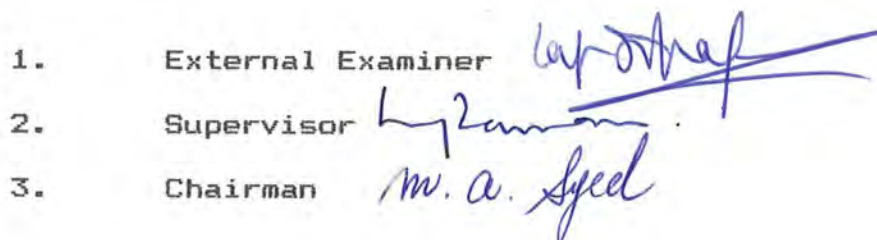 1. External Examiner
2. Supervisor
3. Chairman M. A. Syed